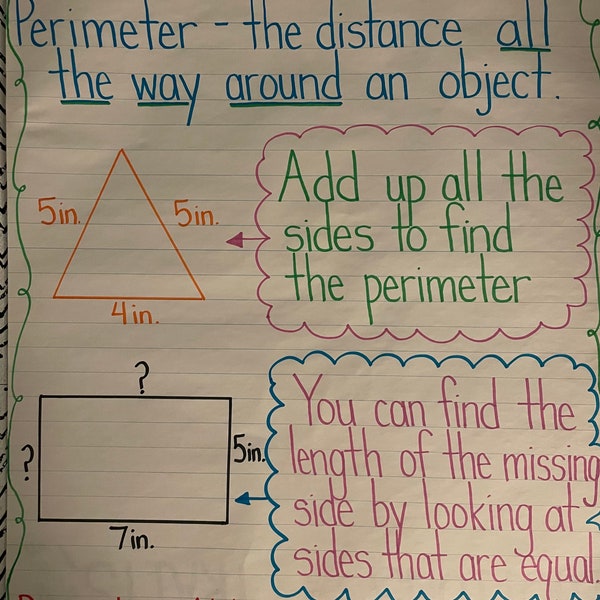 Perimeter - the distance all
the way around an object.
5in.
5in.
4in.
Add up all the
sides to find
the perimeter
?
?
5in.
7in.
You can find the
length of the missing
side by looking at
sides that are equal.